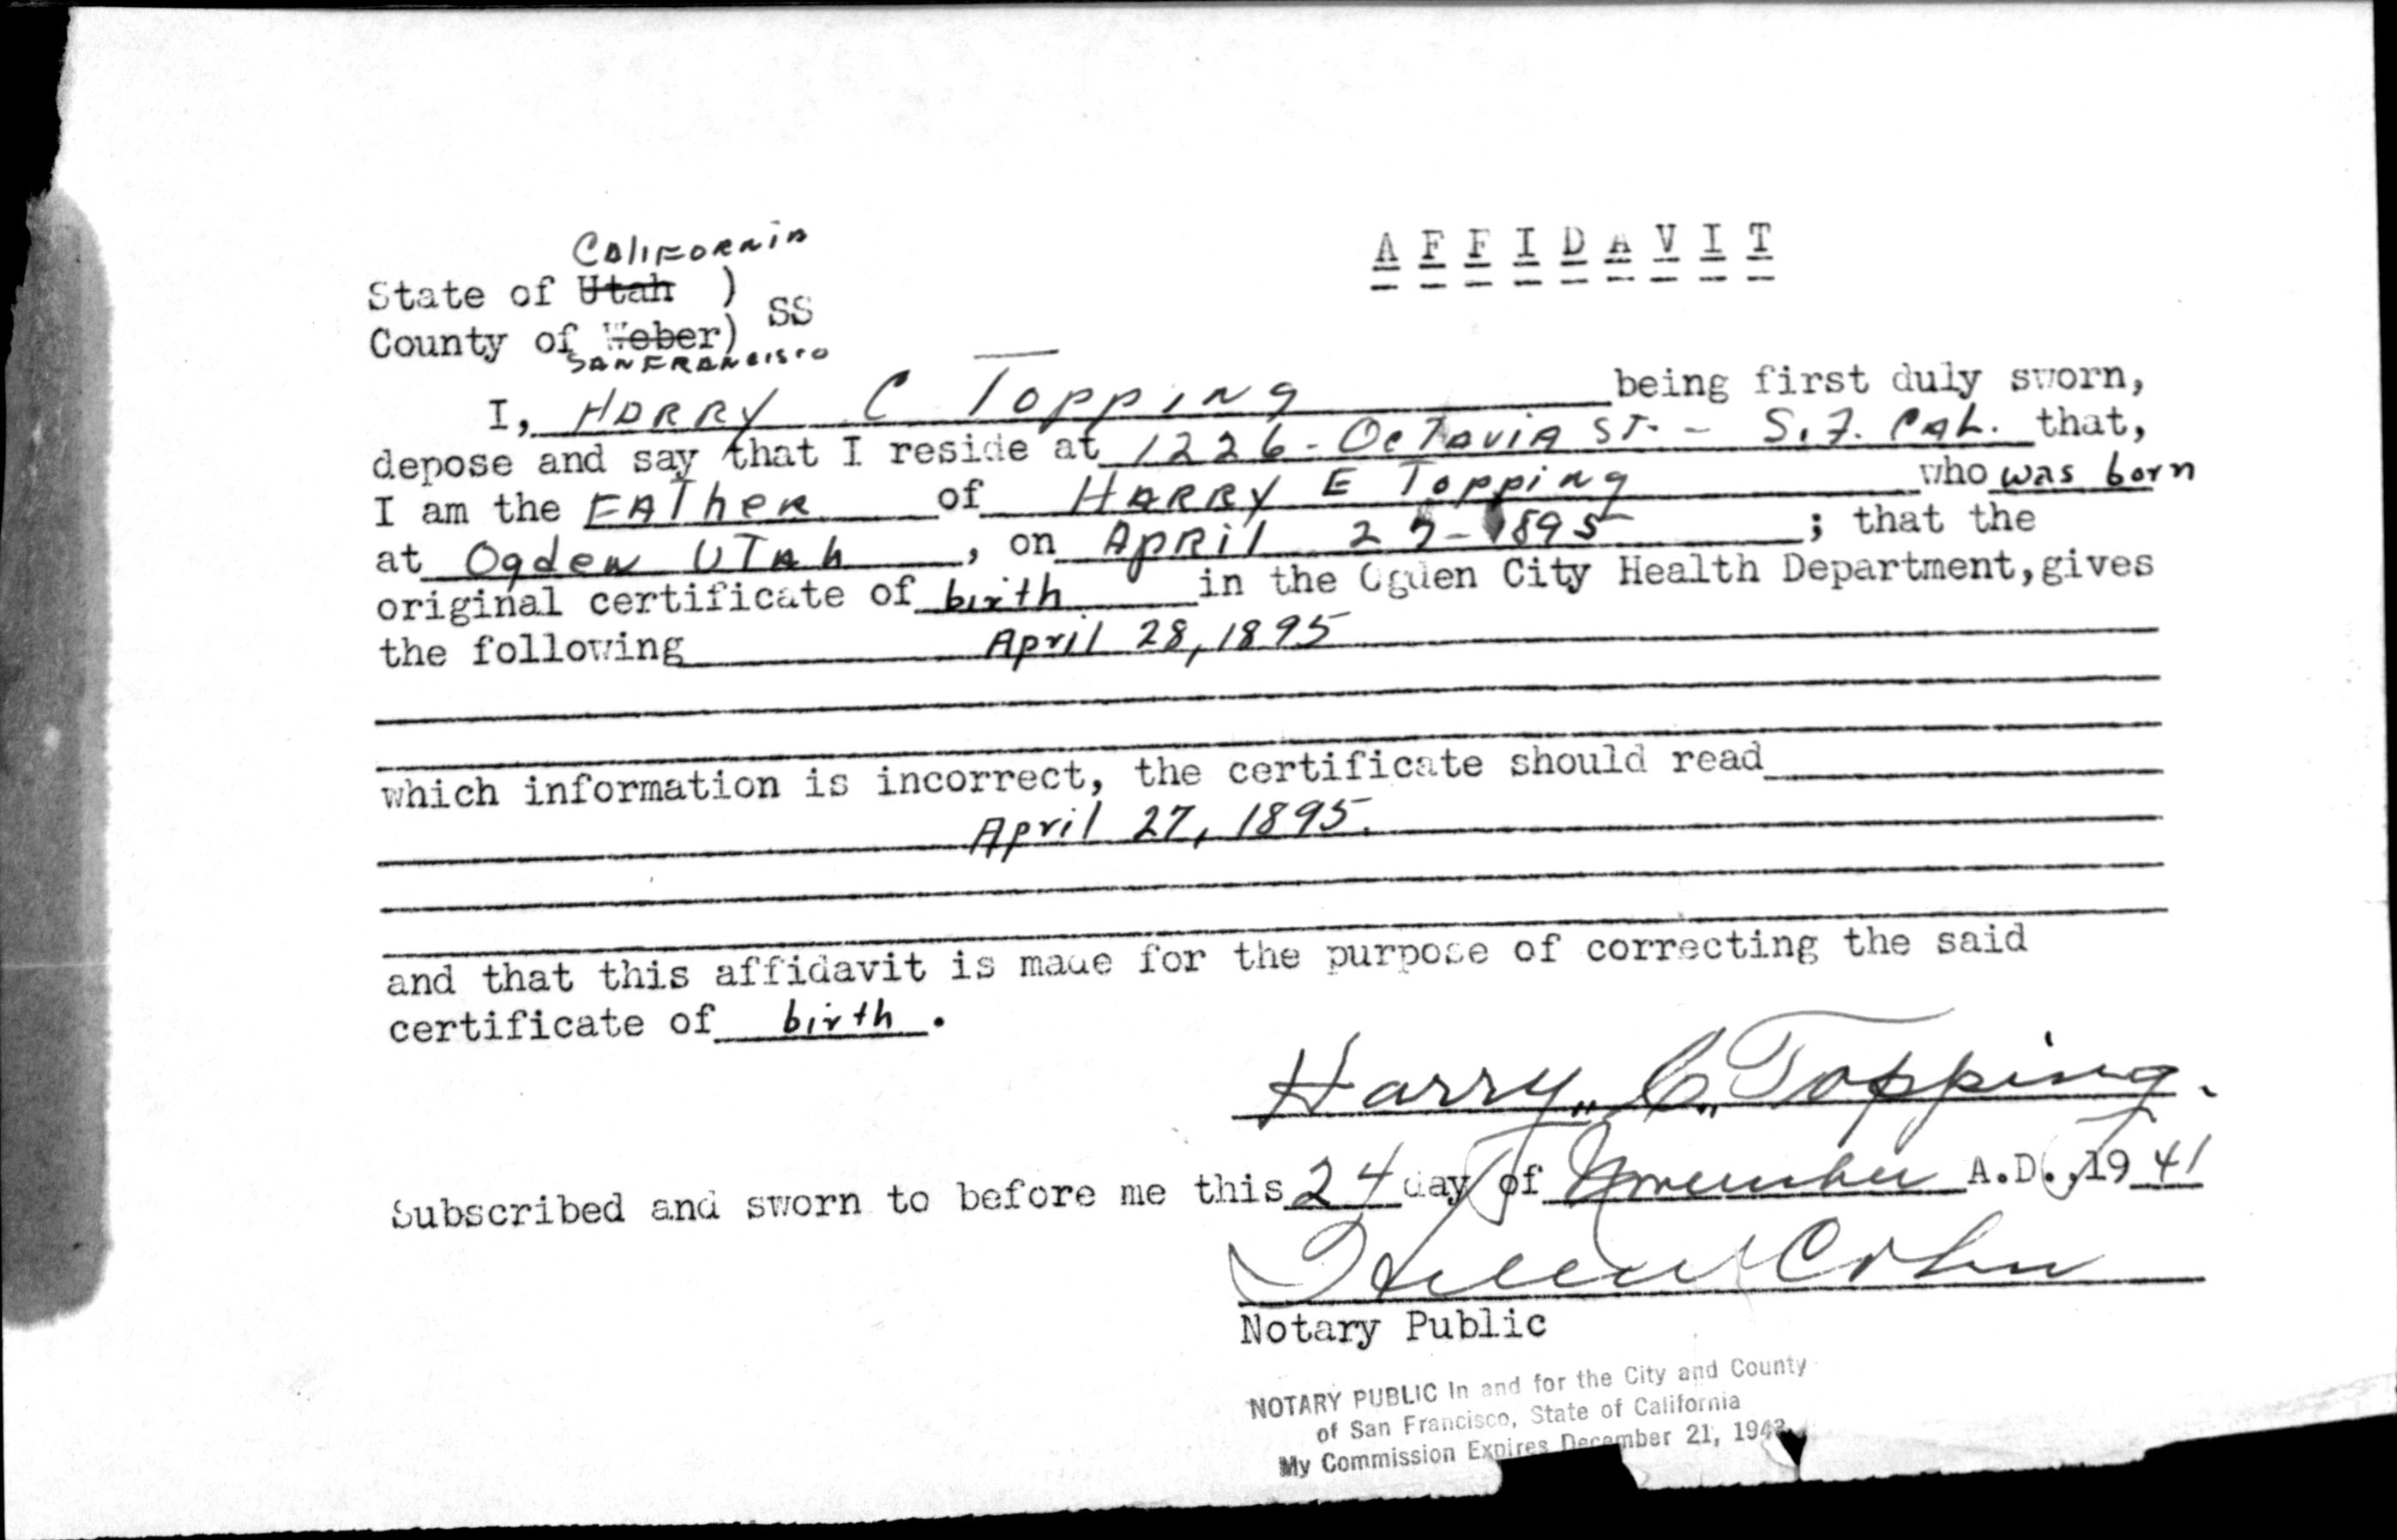 AFFIDAVIT
California
State of Utah )
County of Weber) SS
San Francisco
I, Harry C Topping being first duly sworn,
depose and say that I reside at 1226 - Octavia St. - S.F. Cal. that,
I am the Father of Harry E Topping who was born
at Ogden Utah, on April 27-1895; that the
original certificate of birth in the Ogden City Health Department, gives
the following April 28, 1895
which information is incorrect, the certificate should read
April 27, 1895.
and that this affidavit is made for the purpose of correcting the said
certificate of birth.
Harry C. Topping.
Subscribed and sworn to before me this 24 day of November A.D., 1941
Helen Cohn
Notary Public
NOTARY PUBLIC In and for the City and County
of San Francisco, State of California
My Commission Expires December 21, 194